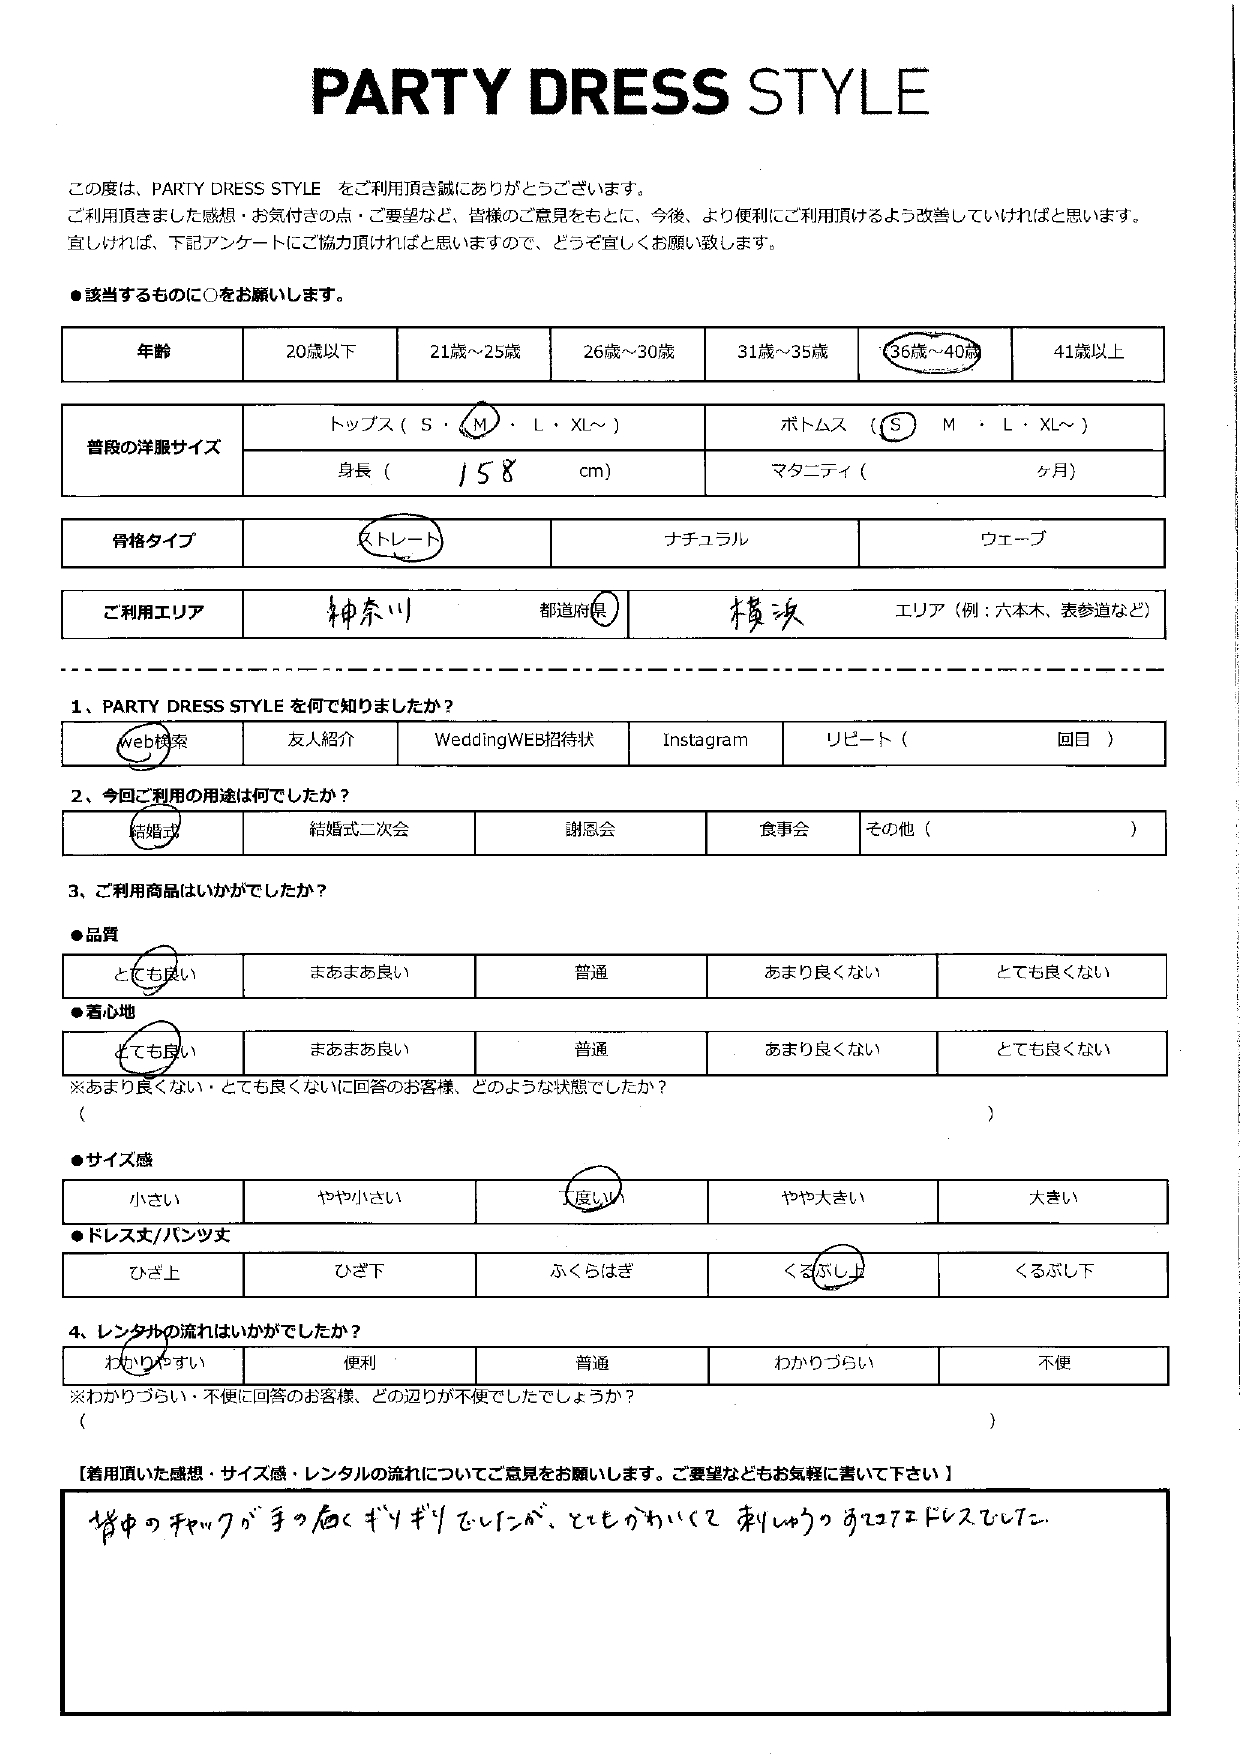 PARTY DRESS STYLE
この度は、PARTY DRESS STYLE をご利用頂き誠にありがとうございます。
ご利用頂きました感想・お気付きの点・ご要望など、皆様のご意見をもとに、今後、より便利にご利用頂けるよう改善していければと思います。
宜しければ、下記アンケートにご協力頂ければと思いますので、どうぞ宜しくお願い致します。
●該当するものに○をお願いします。
年齢 20歳以下 21歳～25歳 26歳～30歳 31歳～35歳 36歳～40歳 41歳以上
普段の洋服サイズ トップス ( S ・ M ・ L ・ XL～ ) ボトムス ( S M ・ L ・ XL～ )
身長 ( 158 cm) マタニティ ( ヶ月)
骨格タイプ ストレート ナチュラル ウェーブ
ご利用エリア 神奈川 都道府県 横浜 エリア（例：六本木、表参道など）
1、PARTY DRESS STYLE を何で知りましたか？
web検索 友人紹介 WeddingWEB招待状 Instagram リピート ( 回目 )
2、今回ご利用の用途は何でしたか？
結婚式 結婚式二次会 謝恩会 食事会 その他 ( )
3、ご利用商品はいかがでしたか？
●品質
とても良い まあまあ良い 普通 あまり良くない とても良くない
●着心地
とても良い まあまあ良い 普通 あまり良くない とても良くない
※あまり良くない・とても良くないに回答のお客様、どのような状態でしたか？
( )
●サイズ感
小さい やや小さい 丁度いい やや大きい 大きい
●ドレス丈/パンツ丈
ひざ上 ひざ下 ふくらはぎ くるぶし上 くるぶし下
4、レンタルの流れはいかがでしたか？
わかりやすい 便利 普通 わかりづらい 不便
※わかりづらい・不便に回答のお客様、どの辺りが不便でしたでしょうか？
( )
【着用頂いた感想・サイズ感・レンタルの流れについてご意見をお願いします。ご要望などもお気軽に書いて下さい 】
背中のチャックが手の届くギリギリでしたが、とてもかわいくて 刺しゅうの すてきなドレスでした。